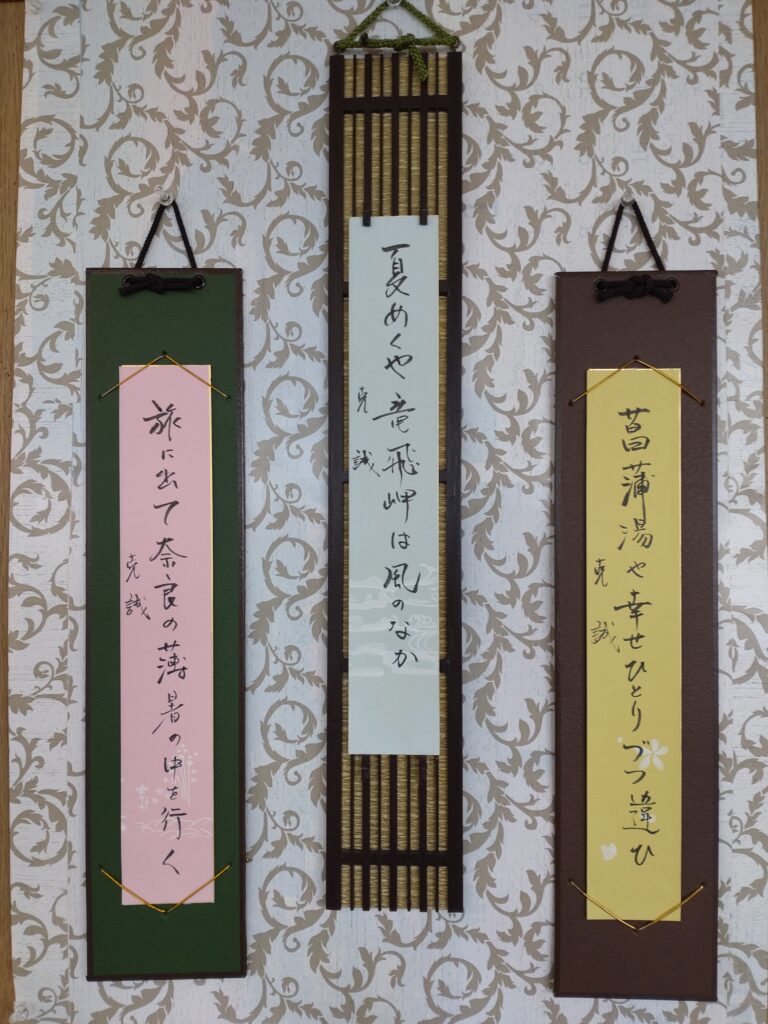 菖蒲湯や幸せひとりづつ違ひ
克誠
夏めくや竜飛岬は風のなか
克誠
旅に出て奈良の薄暑の中を行く
克誠